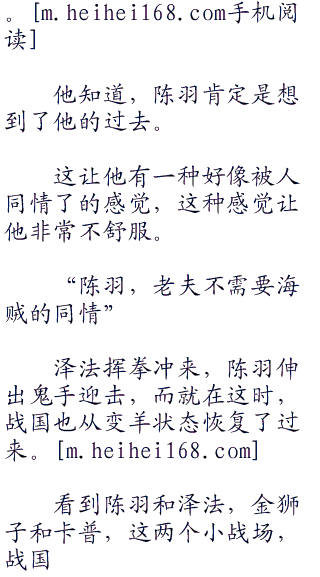 。[m.heihei168.com手机阅
读]
他知道，陈羽肯定是想
到了他的过去。
这让他有一种好像被人
同情了的感觉，这种感觉让
他非常不舒服。
“陈羽，老夫不需要海
贼的同情”
泽法挥拳冲来，陈羽伸
出鬼手迎击，而就在这时，
战国也从变羊状态恢复了过
来。[m.heihei168.com]
看到陈羽和泽法，金狮
子和卡普，这两个小战场，
战国